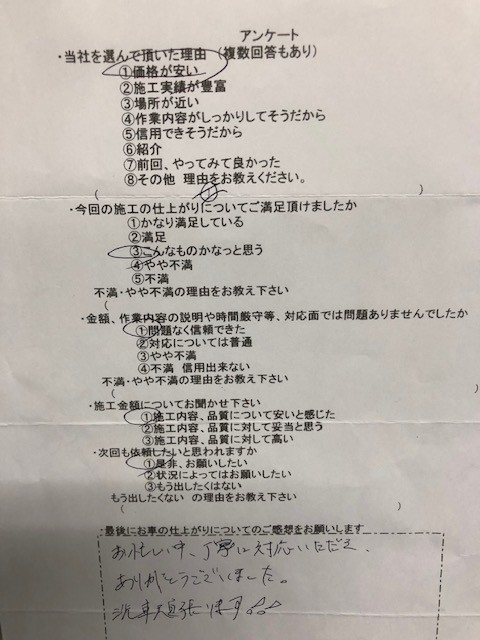 アンケート
・当社を選んで頂いた理由 (複数回答もあり)
①価格が安い
②施工実績が豊富
③場所が近い
④作業内容がしっかりしてそうだから
⑤信用できそうだから
⑥紹介
⑦前回、やってみて良かった
⑧その他 理由をお教えください。
( )
・今回の施工の仕上がりについてご満足頂けましたか
①かなり満足している
②満足
③こんなものかなっと思う
④やや不満
⑤不満
不満・やや不満の理由をお教え下さい
( )
・金額、作業内容の説明や時間厳守等、対応面では問題ありませんでしたか
①問題なく信頼できた
②対応については普通
③やや不満
④不満 信用出来ない
不満・やや不満の理由をお教え下さい
( )
・施工金額についてお聞かせ下さい
①施工内容、品質について安いと感じた
②施工内容、品質に対して妥当と思う
③施工内容、品質に対して高い
・次回も依頼したいと思われますか
①是非、お願いしたい
②状況によってはお願いしたい
③もう出したくはない
もう出したくない の理由をお教え下さい
( )
・最後にお車の仕上がりについてのご感想をお願いします
お忙しい中、丁寧に対応いただき、
ありがとうございました。
洗車頑張ります